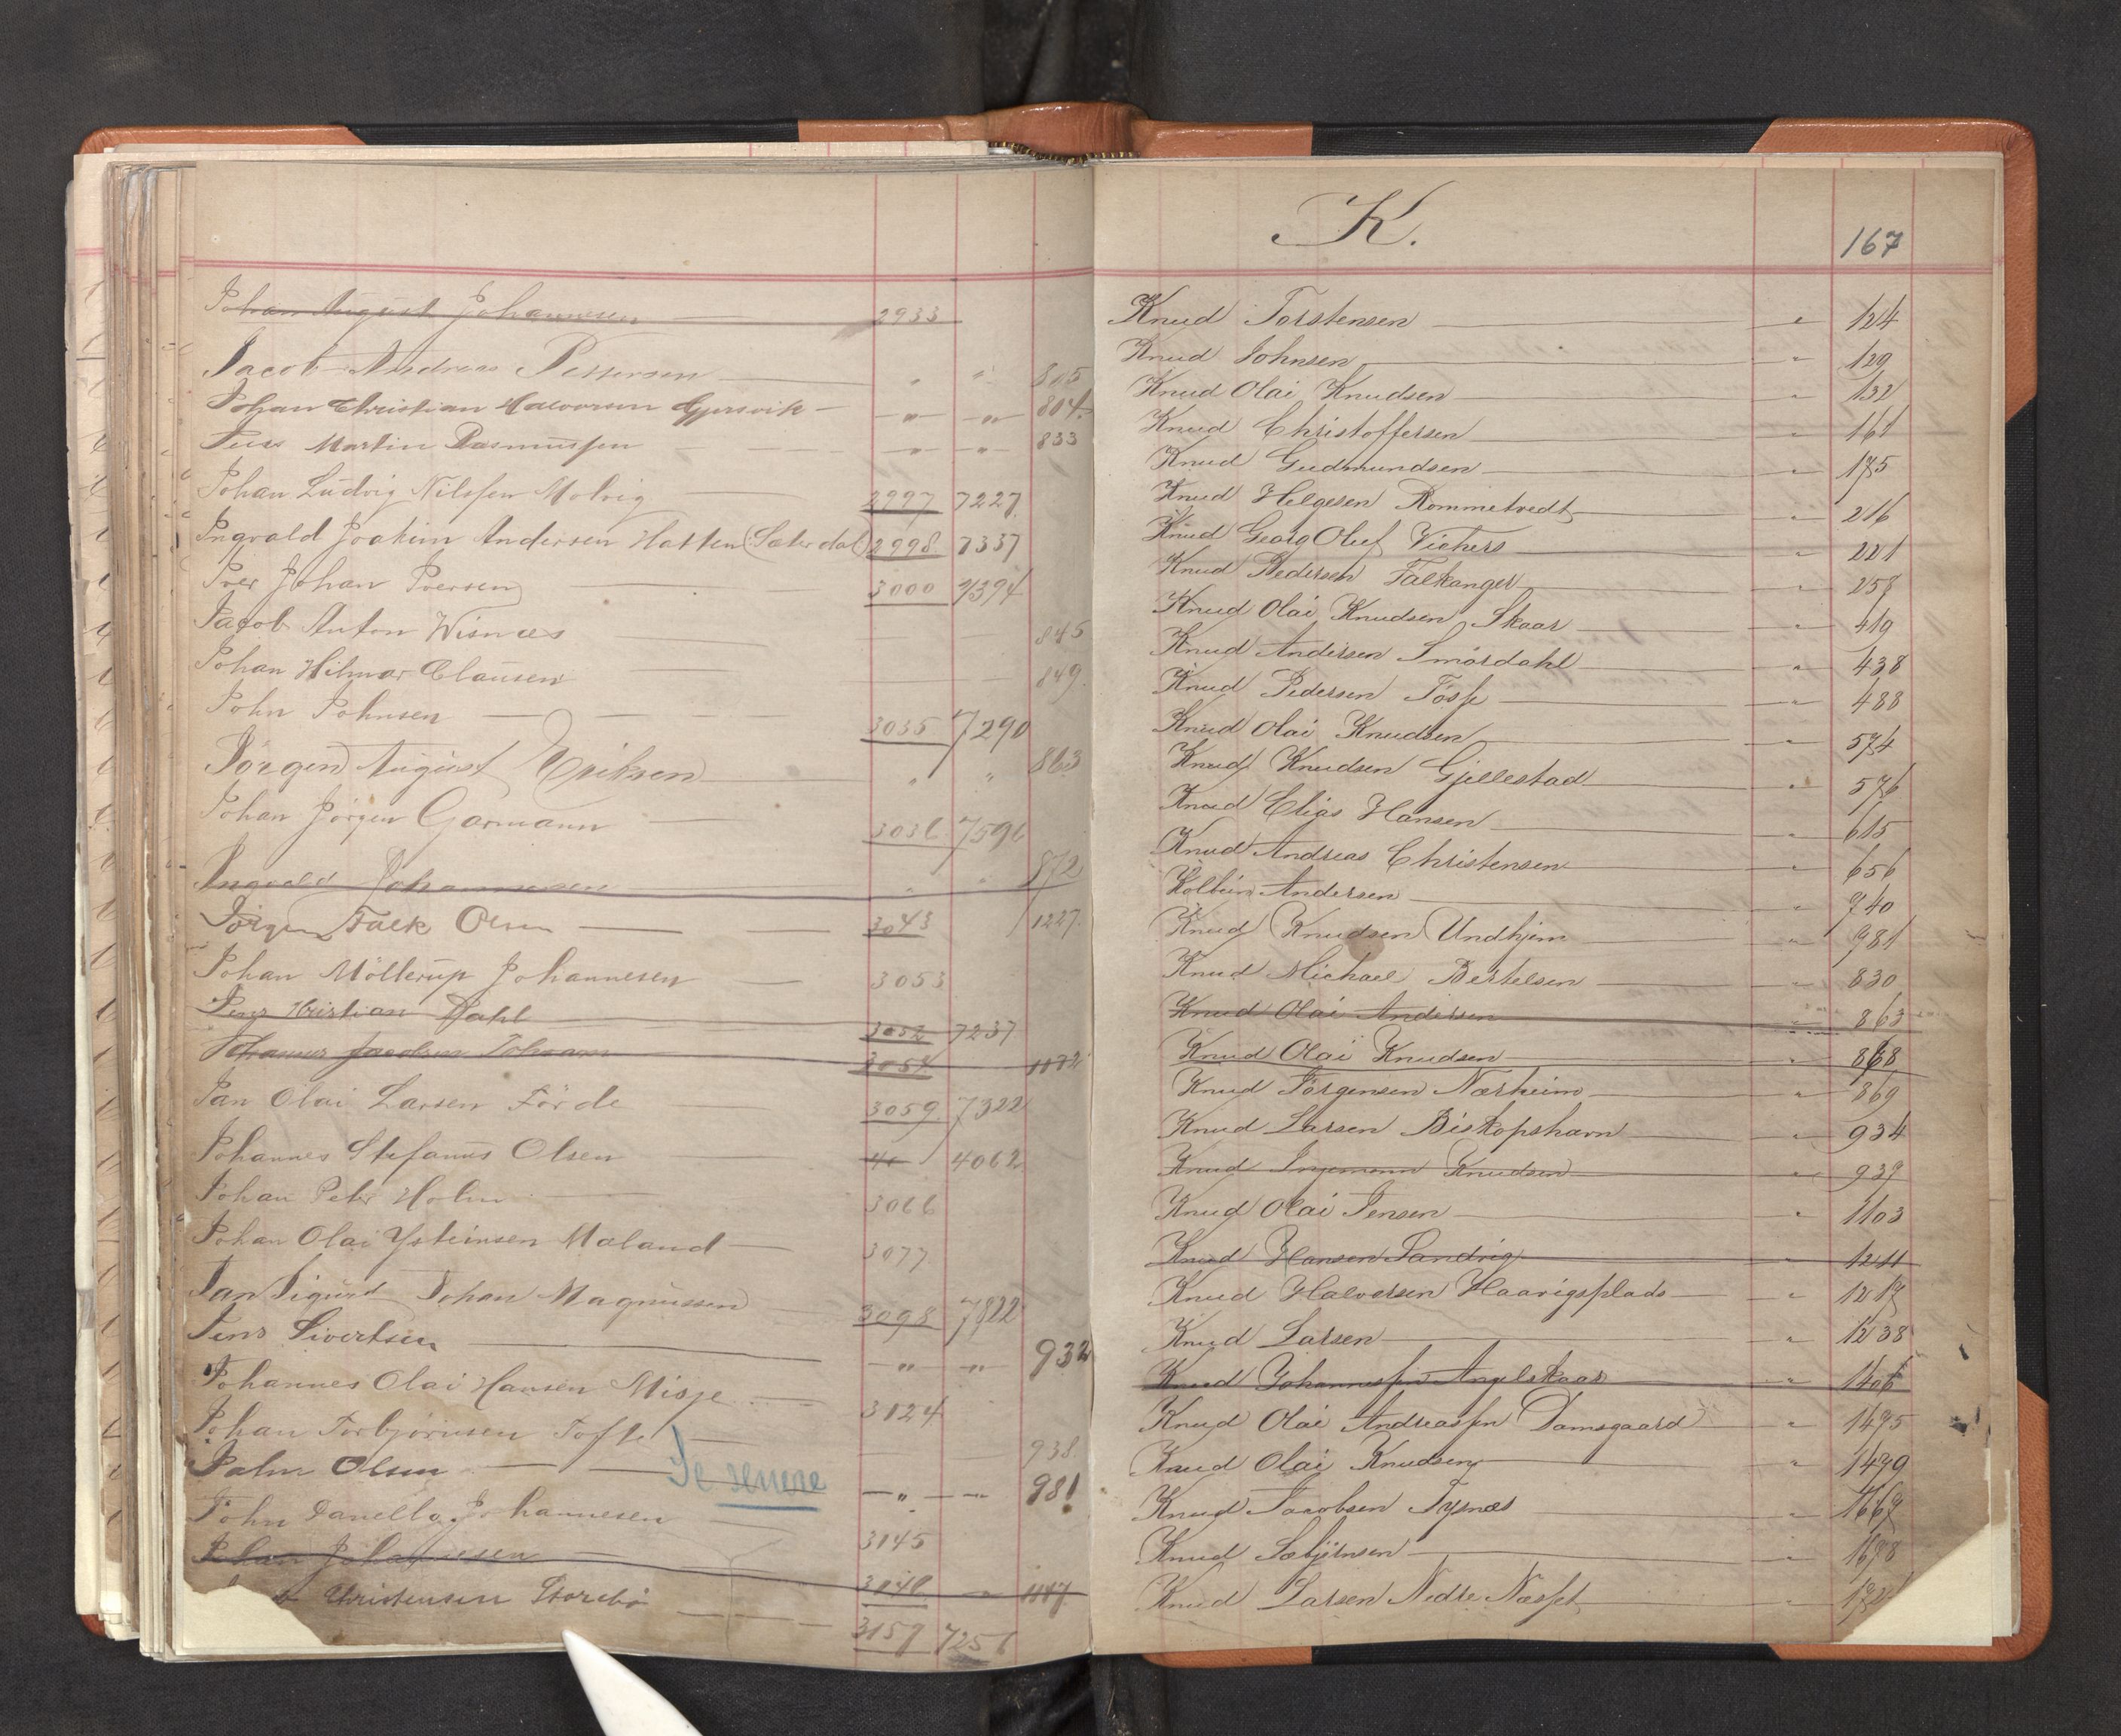 Johan August Johannesen 2933
Jacob Andreas Pettersen " " 805
Johan Christian Halvorsen Gjersvik " " 804
Jens Martin Rasmussen " " 833
Johan Ludvig Nilssen Molvig 2997 7227
Ingvald Joakim Andersen Hatten (Sæterdal) 2998 7337
Iver Johan Iversen 3000 7394
Jacob Anton Wisnæs 845
Johan Hilmar Clausen 849
John Johnsen 3035 7290
Jörgen August Eriksen " " 863
Johan Jörgen Garmann 3036 7596
Ingvald Johannesen " " 872
Jörgen Falck Olsen 3043 1227
Johan Möllerup Johannesen 3053
Jens Kristian Dahl 3052 7237
Johannes Jacobsen 3054 1172
Jan Olai Larsen Förde 3059 7322
Johannes Stefanus Olsen 4062
Johan Peter Holm 3066
Johan Olai Ysteinsen Mæland 3077
Jan Sigurd Johan Magnussen 3098 7822
Jens Sivertsen " " 932
Johannes Olai Hansen Misje 3124
Johan Torbjörnsen Tofte 938
Se senere
John Olsen " " 981
John Danello Johannesen 3145
Johan Johannesen 3146 " 1117
Christensen Storebö 3157 7256
K.
167
Knud Torstensen " 124
Knud Johnsen " 129
Knud Olai Knudsen " 132
Knud Christoffersen " 161
Knud Gudmundsen " 175
Knud Helgesen Rommetvedt " 216
Knud Georg Oluf Vickers " 221
Knud Pedersen Falkanger " 257
Knud Olai Knudsen Skaar " 419
Knud Andersen Smördahl " 438
Knud Pedersen Tösse " 488
Knud Olai Knudsen " 574
Knud Knudsen Gjellestad " 576
Knud Elias Hansen " 615
Knud Andreas Christensen " 656
Kolbein Andersen " 740
Knud Knudsen Undhjem " 781
Knud Michael Bertelsen " 830
Knud Olai Andersen " 863
Knud Olai Knudsen " 868
Knud Jörgensen Nærheim " 869
Knud Larsen Biskopshavn " 934
Knud Ingemann Knudsen " 939
Knud Olai Jensen " 1103
Knud Hansen Sandvig " 1211
Knud Halvorsen Haavigsplads " 1217
Knud Larsen " 1238
Knud Johannessen Angelskaar " 1406
Knud Olai Andreassen Damsgaard " 1475
Knud Olai Knudsen " 1479
Knud Jacobsen Tysnæs " 1667
Knud Sæbjörnsen " 1678
Knud Larsen Nedre Næsset "